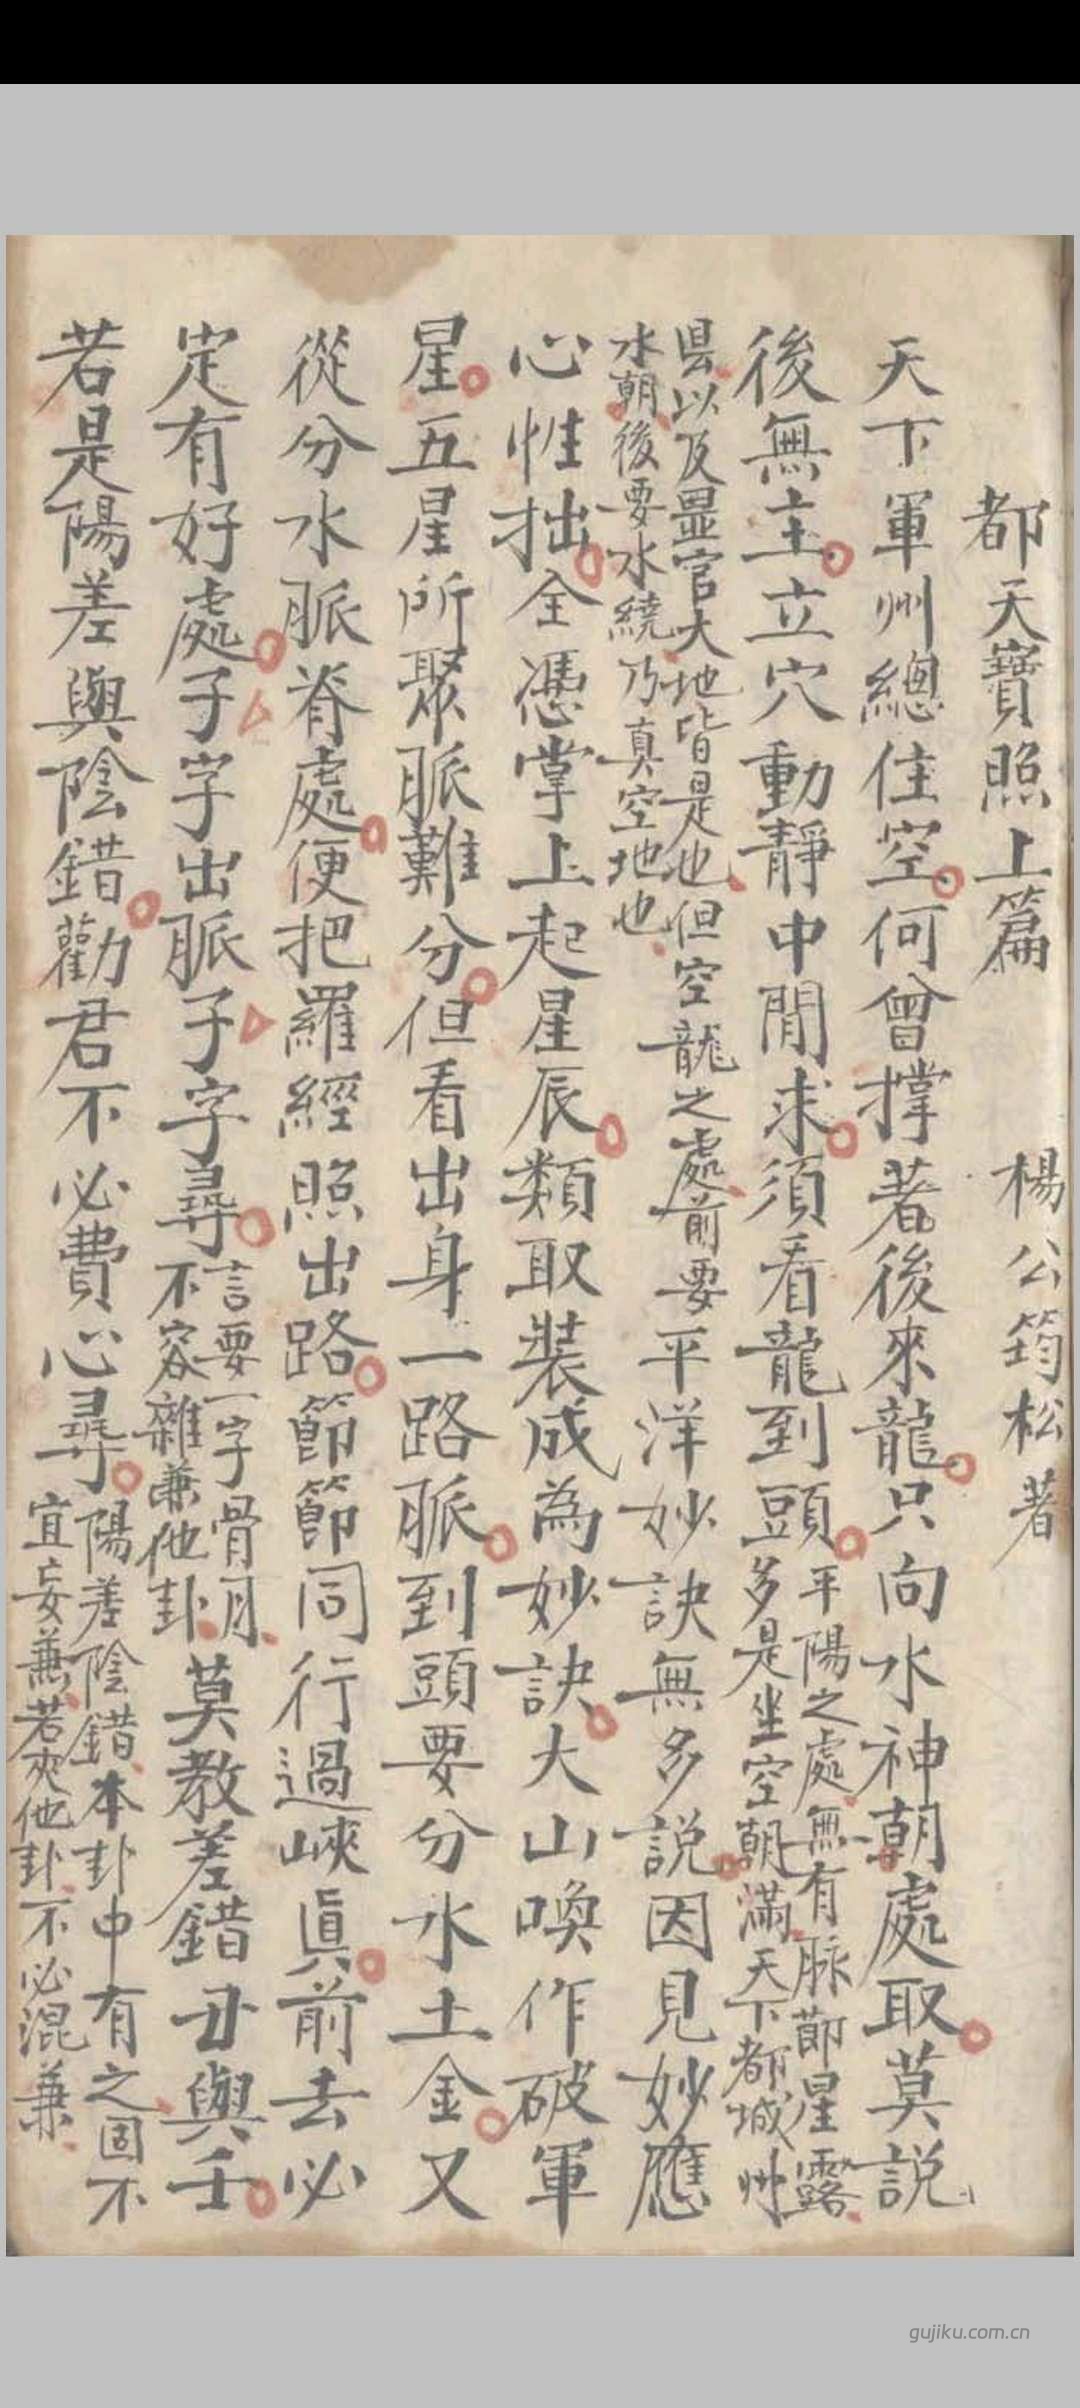 都天寶照上篇　楊公筠松著
天下軍州總住空何曾撑著後來龍只向水神朝處取莫說
後無主立穴動靜中間求須看龍到頭
平陽之處無有脉莭星露
多是坐空朝滿天下都城州
県以及置官大地皆是也但空龍之處前要
水朝後要水繞乃真空地也
平洋妙訣無多說因見妙應
心性拙全憑掌上起星辰類取裝成為妙訣大山喚作破軍
星五星所聚脈難分但看出身一路脈到頭要分水土金又
從分水脈脊處便把羅經照出路節節同行過峽眞前去必
定有好處子字出脈子字尋
言要一字骨月
不容雜兼他卦
莫教差錯丑與壬
若是陽差與陰錯勸君不必費心尋
陽差陰錯本卦中有之固不
宜妄兼若夾他卦不必混兼
gujiku.com.cn